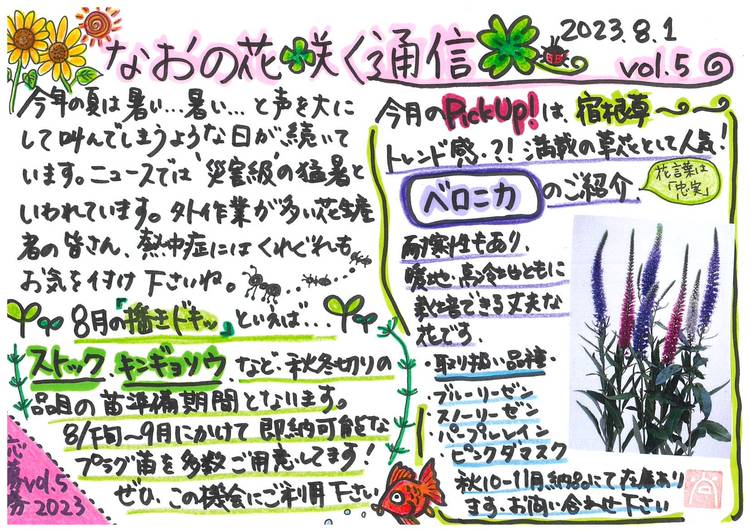 なおの花咲く通信
2023.8.1
vol.5
今年の夏は暑い…暑い…と声を大に
して叫んでしまうような日が続いて
います。ニュースでは"災害級"の猛暑と
いわれています。外作業が多い花生産
者の皆さん、熱中症にはくれぐれも
お気を付け下さいね。
8月の『播きドキッ』といえば…
ストック キンギョソウ など、秋冬切りの
品目の苗準備期間となります。
8/下旬〜9月にかけて即納可能な
プラグ苗を多数ご用意してます!
ぜひ、この機会にご利用下さい
応募券
vol.5
2023
今月のPickUp!は、宿根草
トレンド感・?!満載の草花として人気!
ベロニカ のご紹介。
花言葉は
「忠実」
耐寒性もあり、
暖地・高冷地ともに
栽培できる丈夫な
花です。
・取り扱い品種・
・ブルーリーゼン
・スノーリーゼン
・パープルレイン
・ピンクダマスク
秋10-11月納品にて在庫あり
ます、お問い合わせ下さい